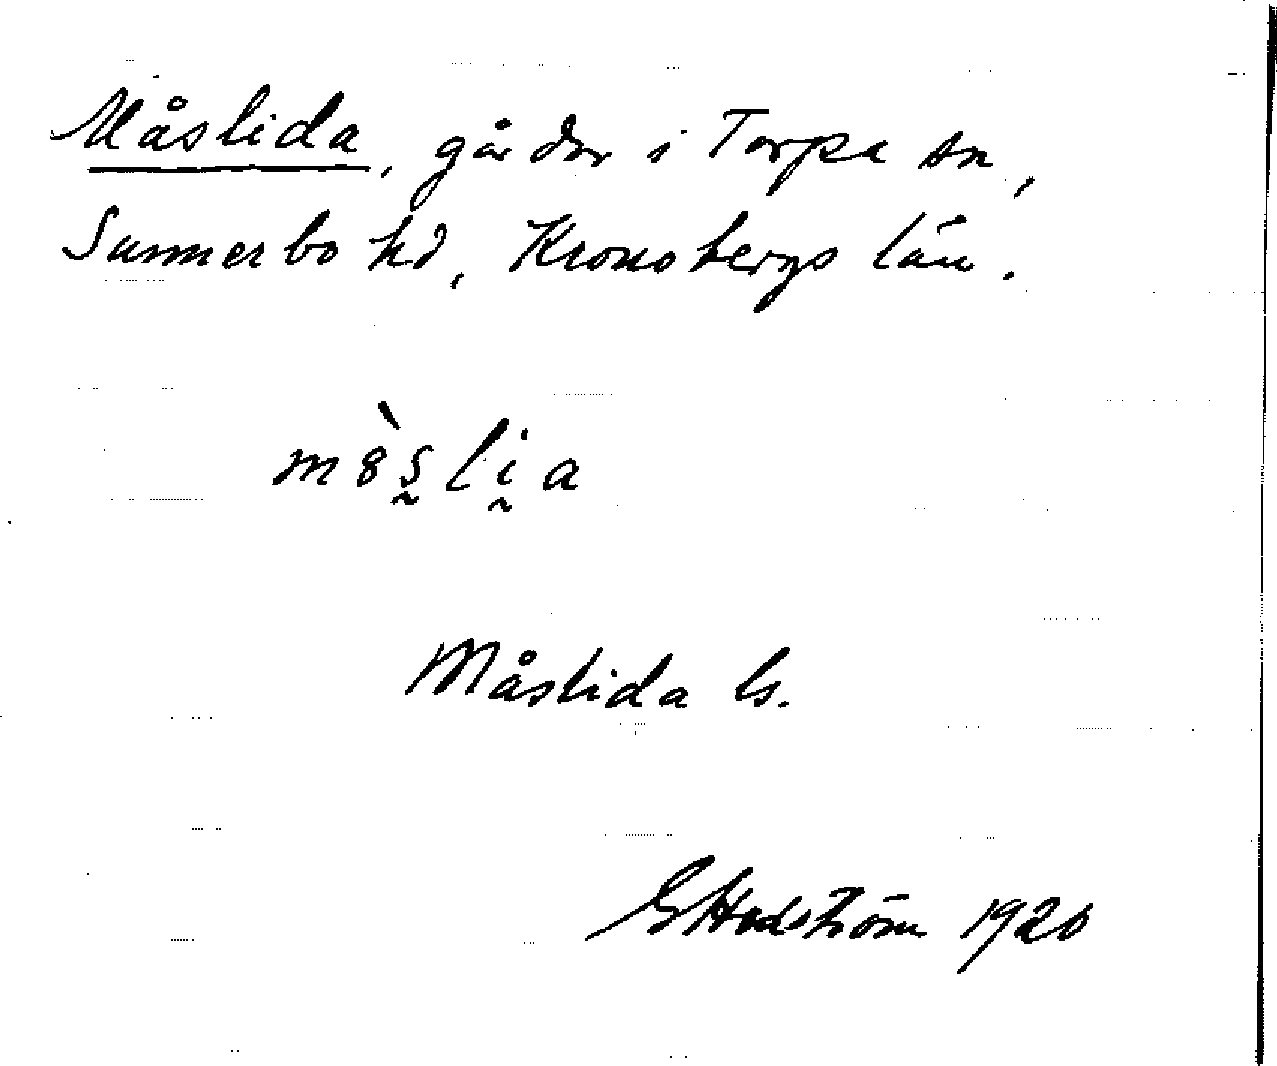 Måslida, gårdar i Torpa sn,
Sunnerbo hd, Kronobergs län.
mòs̰lḭa
Måslida Gs.
G Hedström 1920